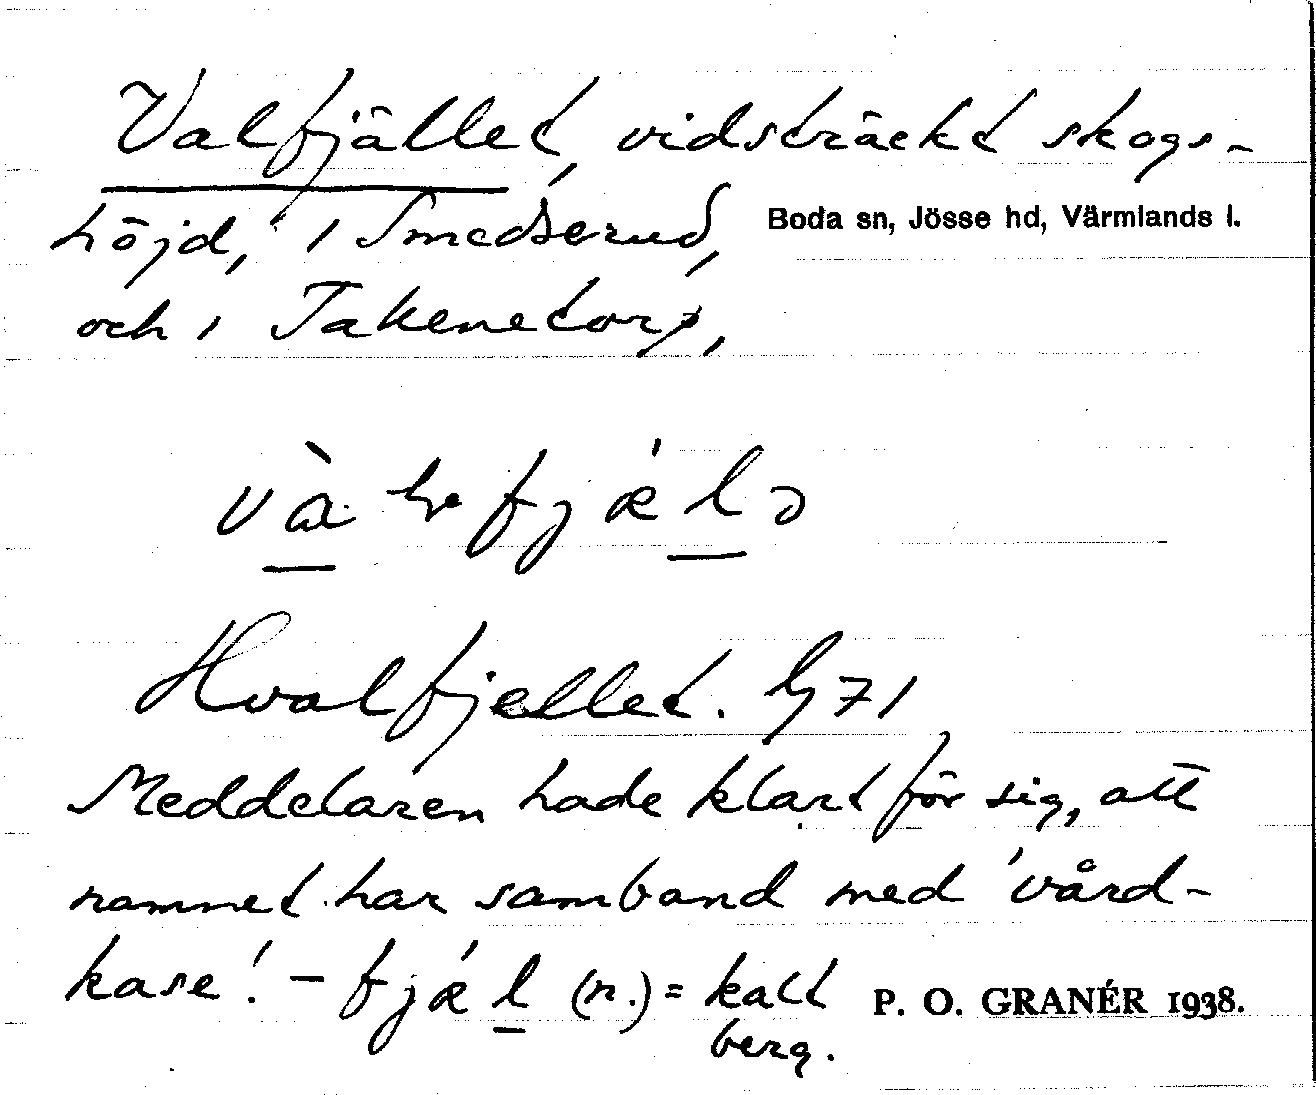 Valfjället, vidsträckt skogs-
höjd, i Smedserud,
Boda sn, Jösse hd, Värmlands l.
och i Takenetorp,
fjǽlə
Hvalfjellet. G 71
Meddelaren hade klart för sig, att
namnet har samband med 'vård-
kase'. - fjǽl (n.) = kalt
berg.
P. O. GRANÉR 1938.